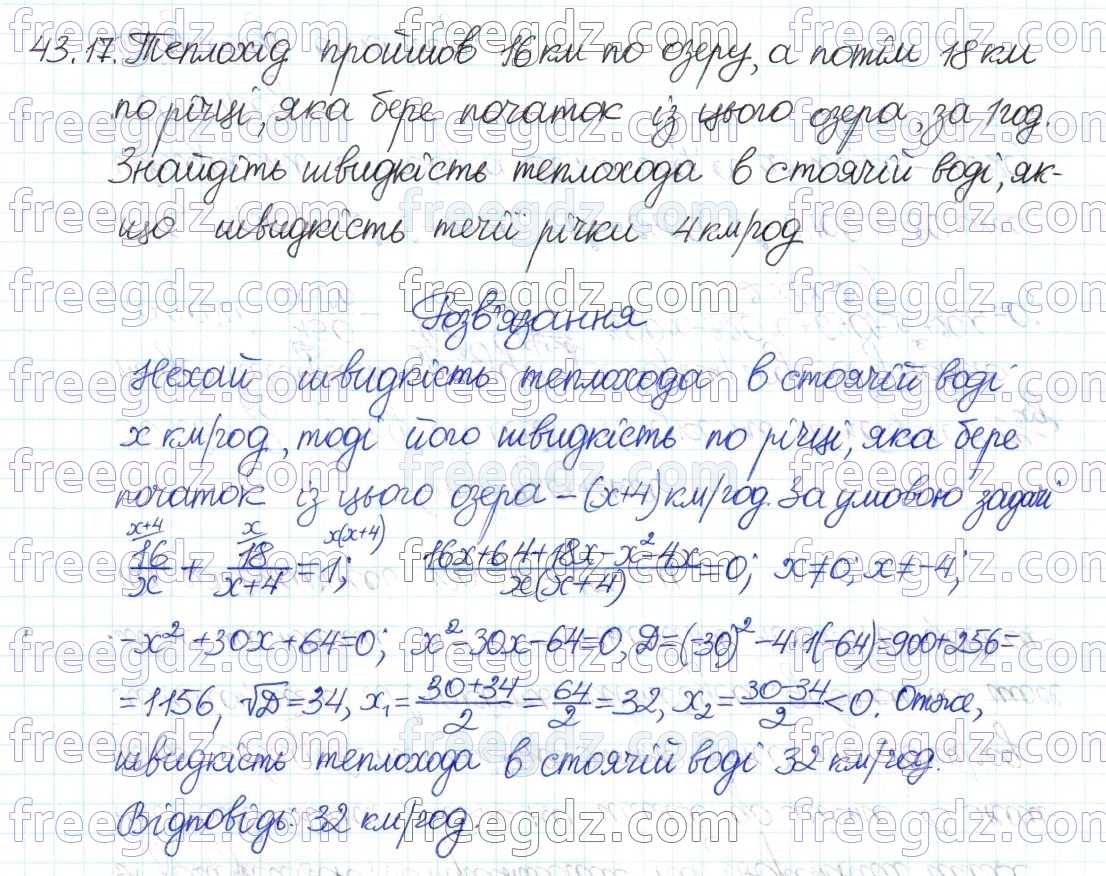 43.17. Теплохід пройшов 16 км по озеру, а потім 18 км
по річці, яка бере початок із цього озера, за 1 год.
Знайдіть швидкість теплохода в стоячій воді, як-
що швидкість течії річки 4 км/год
Розв'язання
Нехай швидкість теплохода в стоячій воді
x км/год, тоді його швидкість по річці, яка бере
початок із цього озера – (x+4) км/год. За умовою задачі
x+4 x x(x+4)
16/x + 18/(x+4) = 1; (16x+64+18x-x²-4x)/(x(x+4)) = 0; x≠0; x≠-4;
-x²+30x+64=0; x²-30x-64=0, D=(-30)²-4·1(-64)=900+256=
=1156, √D=34, x₁=(30+34)/2=64/2=32, x₂=(30-34)/2<0. Отже,
швидкість теплохода в стоячій воді 32 км/год.
Відповідь: 32 км/год.
freegdz.com